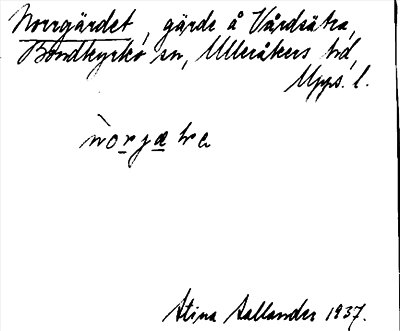 Norrgärdet, gärde å Vårdsätra,
Bondkyrko sn, Ulleråkers hd,
Upps. l.
Stina Sallander 1937.